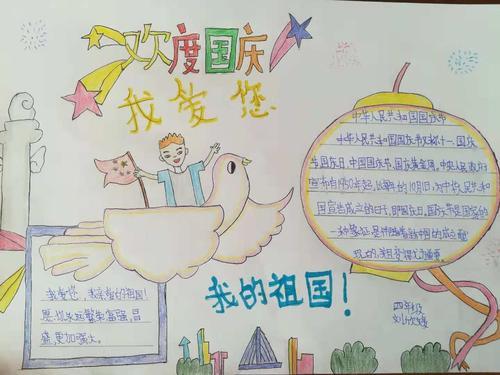 欢度国庆
我爱您
中华人民共和国国庆节
中华人民共和国国庆节又称十一、国庆
节、国庆日、中国国庆节、国庆黄金周。中央人民政府
宣布自1950年起,以每年的10月1日,为中华人民共和
国宣告成立的日子,即国庆日。国庆节是国家的
一种象征,是伴随着新中国的成立
我爱您,我亲爱的祖国!
愿您永远繁荣富强,昌
盛,更加强大。
我的祖国!
四年级